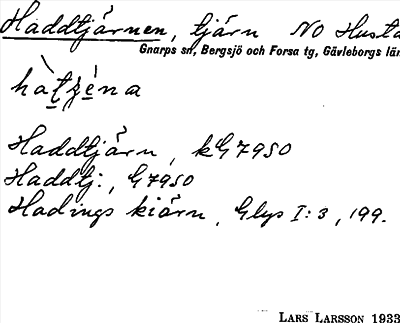 Haddtjärnen, tjärn NO Husta
Gnarps sn, Bergsjö och Forsa tg, Gävleborgs län
Haddtjärn, kG7950
Haddtj:, G7950
Hadings kiärn, Glys I:3, 199.
LARS LARSSON 1933